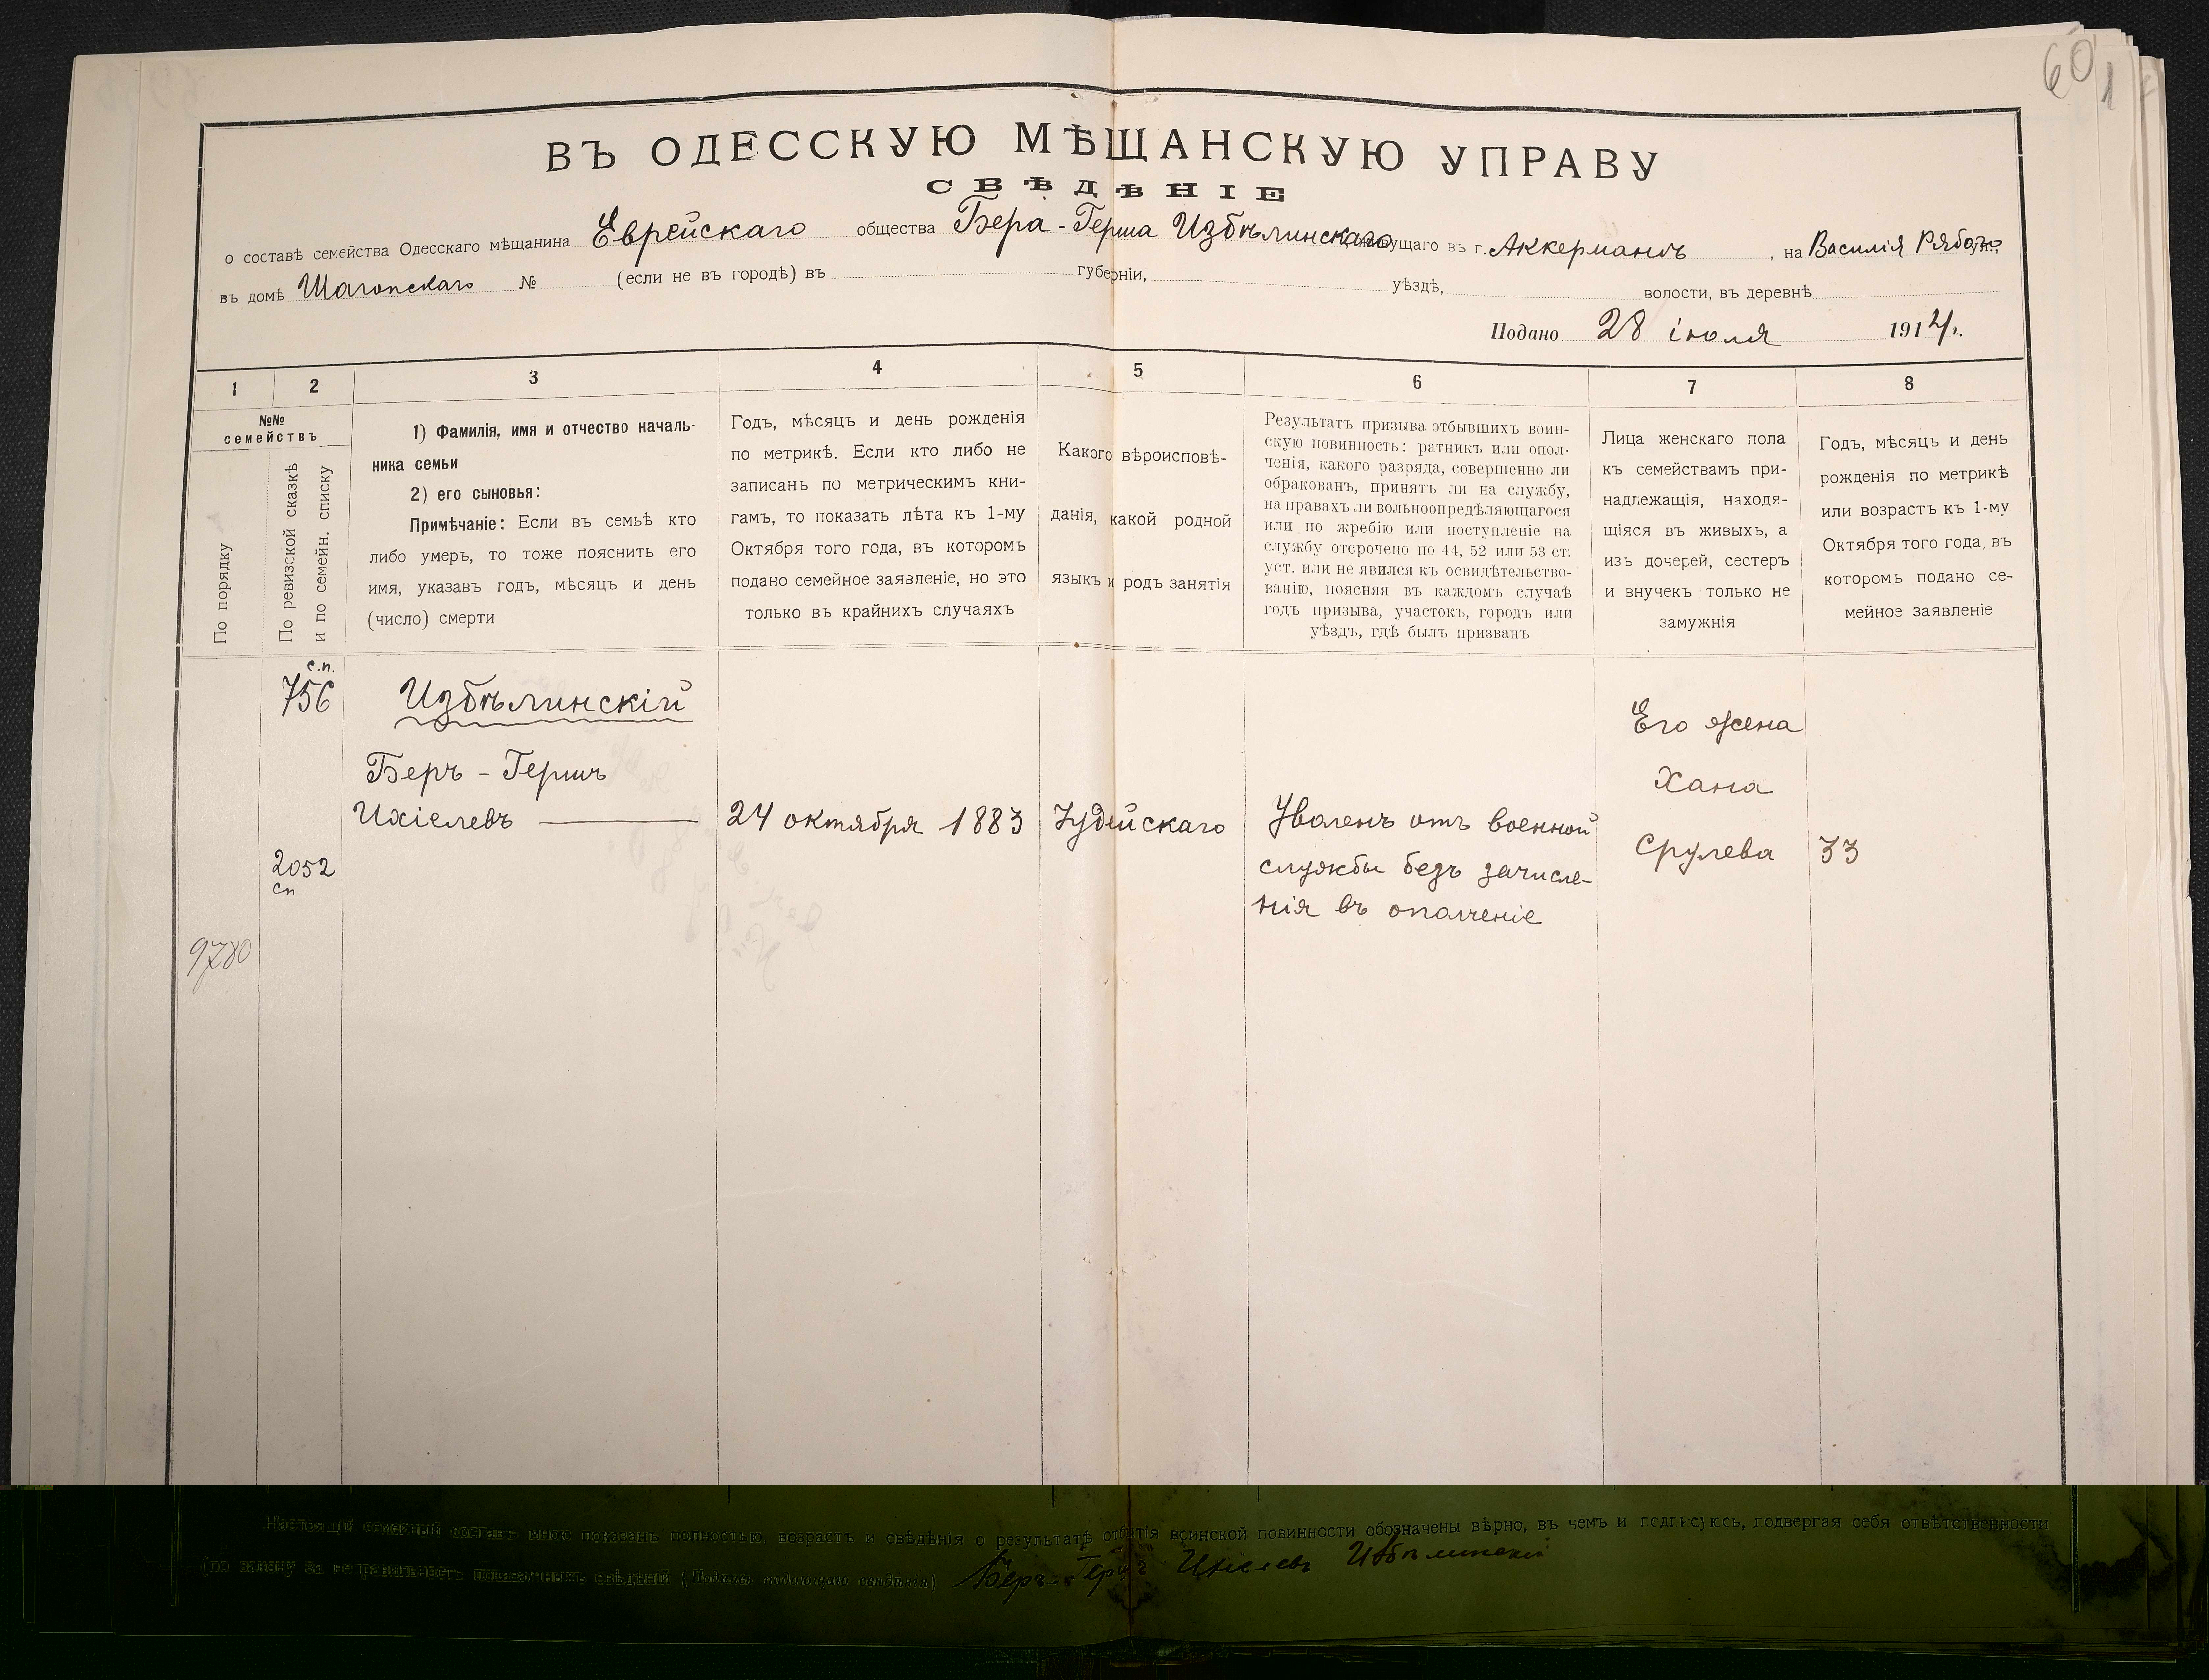 60
1
ВЪ ОДЕССКУЮ МѢЩАНСКУЮ УПРАВУ
СВѢДѢНІЕ
о составѣ семейства Одесскаго мѣщанина Еврейскаго общества Бера-Герша Избѣлинскаго живущаго въ г. Аккерманѣ, на Василія Рябова ул.,
въ домѣ Шагопскаго № (если не въ городѣ) въ губерніи, уѣздѣ, волости, въ деревнѣ
Подано 28 іюля 1914 г.
1 2 3 4 5 6 7 8
№№
семействъ
По порядку
По ревизской сказкѣ
и по семейн. списку
1) Фамилія, имя и отчество началь-
ника семьи
2) его сыновья:
Примѣчаніе: Если въ семьѣ кто
либо умеръ, то тоже пояснить его
имя, указавъ годъ, мѣсяцъ и день
(число) смерти
Годъ, мѣсяцъ и день рожденія
по метрикѣ. Если кто либо не
записанъ по метрическимъ кни-
гамъ, то показать лѣта къ 1-му
Октября того года, въ которомъ
подано семейное заявленіе, но это
только въ крайнихъ случаяхъ
Какого вѣроисповѣ-
данія, какой родной
языкъ и родъ занятія
Результатъ призыва отбывшихъ воин-
скую повинность: ратникъ или опол-
ченія, какого разряда, совершенно ли
обракованъ, принятъ ли на службу,
на правахъ ли вольноопредѣляющагося
или по жребію или поступленіе на
службу отсрочено по 44, 52 или 53 ст.
уст. или не явился къ освидѣтельство-
ванію, поясняя въ каждомъ случаѣ
годъ призыва, участокъ, городъ или
уѣздъ, гдѣ былъ призванъ
Лица женскаго пола
къ семействамъ при-
надлежащія, находя-
щіяся въ живыхъ, а
изъ дочерей, сестеръ
и внучекъ только не
замужнія
Годъ, мѣсяцъ и день
рожденія по метрикѣ
или возрастъ къ 1-му
Октября того года, въ
которомъ подано се-
мейное заявленіе
с.п.
756
Избѣлинскій
Беръ - Гершъ
Ихіелевъ
24 октября 1883
Іудейскаго
Уволенъ отъ военной
службы безъ зачисле-
нія въ ополченіе
Его жена
Хана
Срулева
33
2052
сп
9780
Настоящій семейный составъ мною показанъ полностью, возрастъ и свѣдѣнія о результатѣ отбытія воинской повинности обозначены вѣрно, въ чемъ и подписуюсь, подвергая себя отвѣтственности
(по закону за неправильность показанныхъ свѣдѣній ( Беръ-Гершъ Ихіелевъ Избѣлинскій